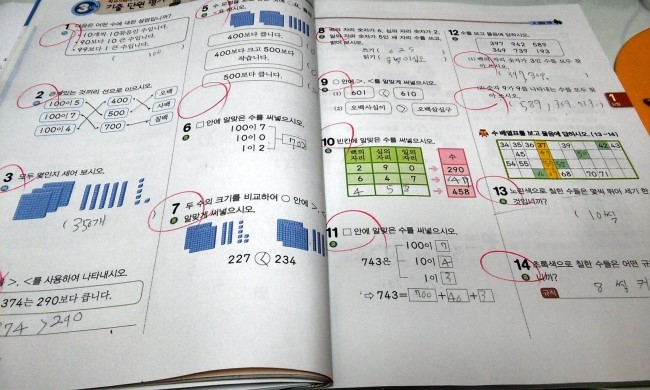 3
기출 단원 평가
1 다음은 어떤 수에 대한 설명입니까?
10개인 수입니다.
90보다 10 큰 수입니다.
99보다 1 큰 수입니다.
2 관계있는 것끼리 선으로 이으시오.
100이 5 400 오백
100이 7 500 사백
100이 4 700 칠백
3 모두 몇인지 세어 보시오.
>, <를 사용하여 나타내시오.
374는 290보다 큽니다.
374 > 290
5
400보다 큽니다.
400보다 크고 500보다
작습니다.
500보다 큽니다.
6 □ 안에 알맞은 수를 써넣으시오.
100이 7
10이 0
1이 2
702
7 두 수의 크기를 비교하여 ○ 안에 >,
알맞게 써넣으시오.
227 < 234
8 백의 자리 숫자가 6, 십의 자리 숫자가 2,
일의 자리 숫자가 5인 세 자리 수를 쓰고,
읽어 보시오.
쓰기 ( 625
읽기 (
9 ○ 안에 >, <를 알맞게 써넣으시오.
(1) 601 < 610
(2) 오백사십이 > 오백삼십구
10 빈칸에 알맞은 수를 써넣으시오.
백의 자리 십의 자리 일의 자리 수
2 9 0 290
6 4 7 647
4 5 8 458
11 □ 안에 알맞은 수를 써넣으시오.
743은
100이 7
10이 4
1이 3
⇨ 743= 700 + 40 + 3
12 수를 보고 물음에 답하시오.
397 942 589
369 739 193
(1) 백의 자리 숫자가 3인 수를 모두 찾
아 쓰시오.
(2) 숫자 9가 90을 나타내는 수를 모두 찾
아 쓰시오.
1
수 배열표를 보고 물음에 답하시오. (13~14)
34 35 36 37 42 43
45
54 55
68 70 71
13 노란색으로 칠한 수들은 몇씩 뛰어 세기 한
것입니까?
( 10씩
14 초록색으로 칠한 수들은 어떤 규
니까?
규칙 8 씩 커